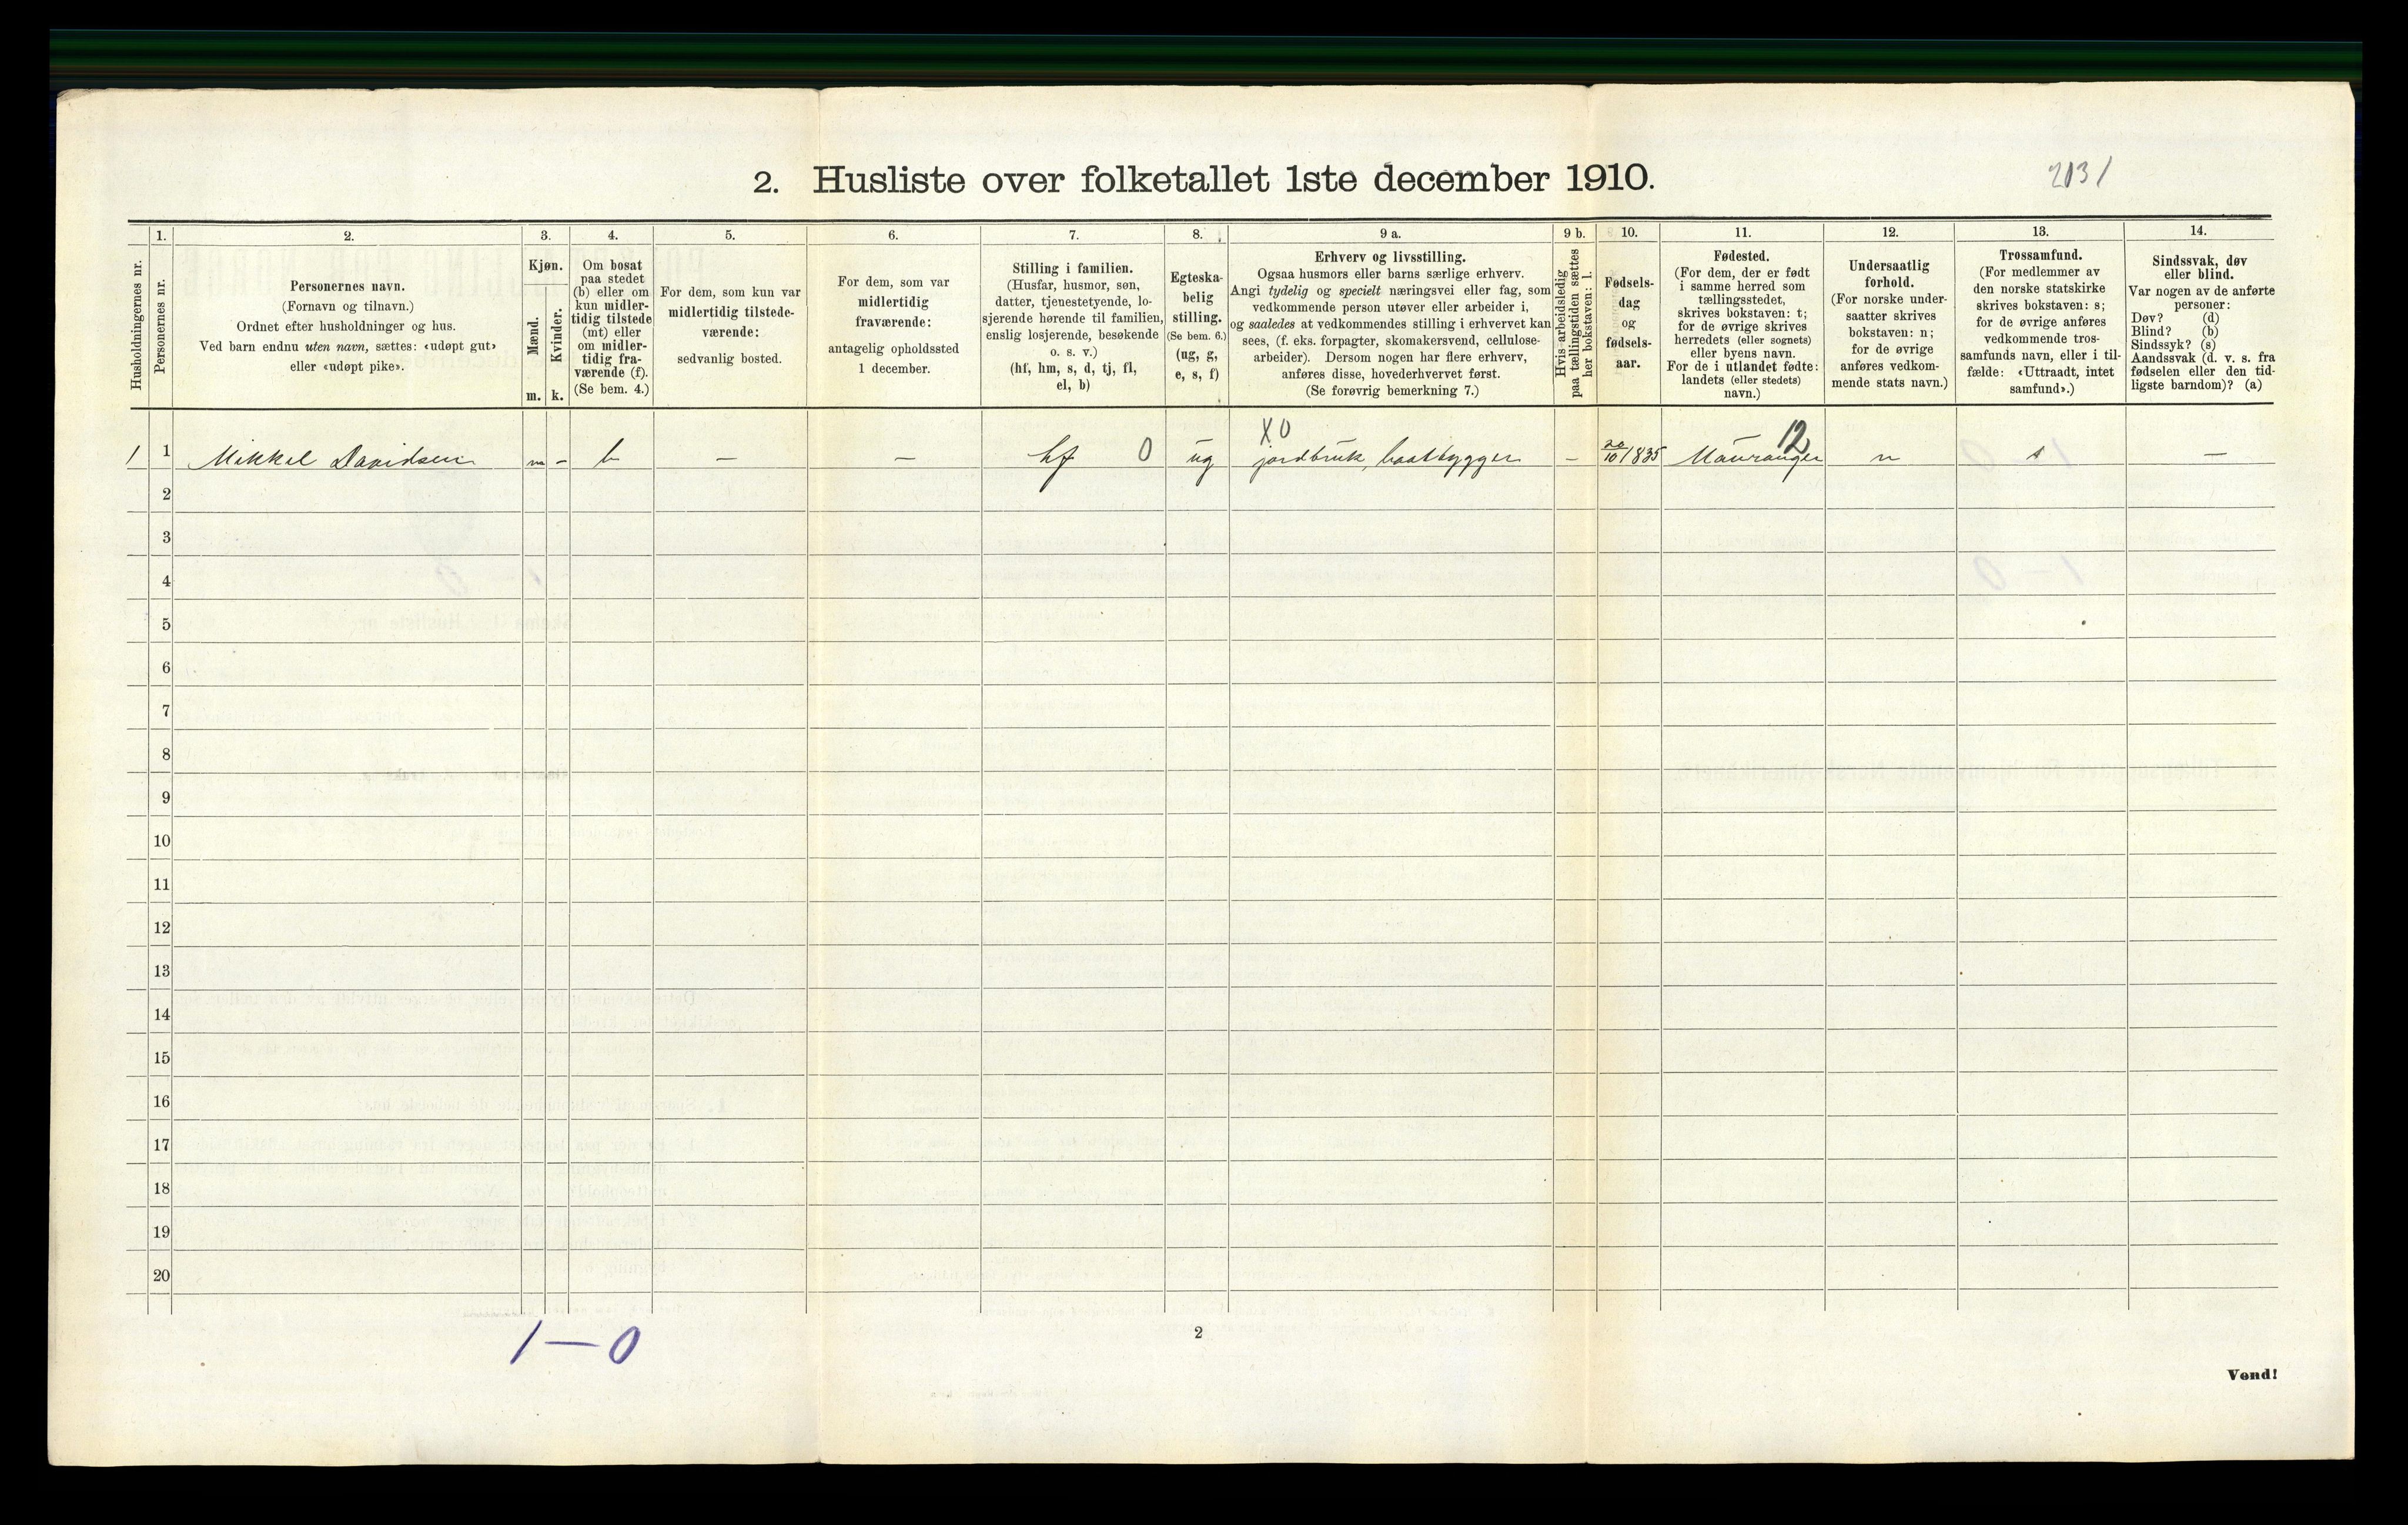 2. Husliste over folketallet 1ste december 1910.
2131
Husholdningernes nr.
1.
Personernes nr.
2.
Personernes navn.
(Fornavn og tilnavn.)
Ordnet efter husholdninger og hus.
Ved barn endnu uten navn, sættes: «udøpt gut»
eller «udøpt pike».
3.
Kjøn.
Mænd.
Kvinder.
m. k.
4.
Om bosat
paa stedet
(b) eller om
kun midler-
tidig tilstede
(mt) eller
om midler-
tidig fra-
værende (f).
(Se bem. 4.)
5.
For dem, som kun var
midlertidig tilstede-
værende:
sedvanlig bosted.
6.
For dem, som var
midlertidig
fraværende:
antagelig opholdssted
1 december.
7.
Stilling i familien.
(Husfar, husmor, søn,
datter, tjenestetyende, lo-
sjerende hørende til familien,
enslig losjerende, besøkende
o. s. v.)
(hf, hm, s, d, tj, fl,
el, b)
8.
Egteska-
belig
stilling.
(Se bem. 6.)
(ug, g,
e, s, f)
9 a.
Erhverv og livsstilling.
Ogsaa husmors eller barns særlige erhverv.
Angi tydelig og specielt næringsvei eller fag, som
vedkommende person utøver eller arbeider i,
og saaledes at vedkommendes stilling i erhvervet kan
sees, (f. eks. forpagter, skomakersvend, cellulose-
arbeider). Dersom nogen har flere erhverv,
anføres disse, hovederhvervet først.
(Se forøvrig bemerkning 7.)
9 b.
Hvis arbeidsledig
paa tællingstiden sættes
her bokstaven: l.
10.
Fødsels-
dag
og
fødsels-
aar.
11.
Fødested.
(For dem, der er født
i samme herred som
tællingsstedet,
skrives bokstaven: t;
for de øvrige skrives
herredets (eller sognets)
eller byens navn.
For de i utlandet fødte:
landets (eller stedets)
navn.)
12.
Undersaatlig
forhold.
(For norske under-
saatter skrives
bokstaven: n;
for de øvrige
anføres vedkom-
mende stats navn.)
13.
Trossamfund.
(For medlemmer av
den norske statskirke
skrives bokstaven: s;
for de øvrige anføres
vedkommende tros-
samfunds navn, eller i til-
fælde: «Uttraadt, intet
samfund».)
14.
Sindssvak, døv
eller blind.
Var nogen av de anførte
personer:
Døv? (d)
Blind? (b)
Sindssyk? (s)
Aandssvak (d. v. s. fra
fødselen eller den tid-
ligste barndom)? (a)
X 0 12
1 1 Mikkel Davidsen m - b - - hf 0 ug jordbruk, baatbygger - 20/10 1835 Mauranger n s -
2
3
4
5
6
7
8
9
10
11
12
13
14
15
16
17
18
19
20
1-0
2
Vend!